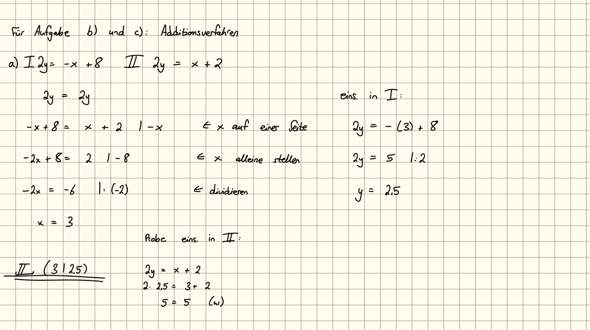 Für Aufgabe b) und c): Additionsverfahren
a) I 2y = -x + 8 II 2y = x + 2
2y = 2y
-x + 8 = x + 2 | -x ← x auf einer Seite
-2x + 8 = 2 | -8 ← x alleine stellen
-2x = -6 | : (-2) ← dividieren
x = 3
eins. in I:
2y = -(3) + 8
2y = 5 | : 2
y = 2,5
Probe eins. in II:
2y = x + 2
2 · 2,5 = 3 + 2
5 = 5 (w)
IL (3 | 2,5)